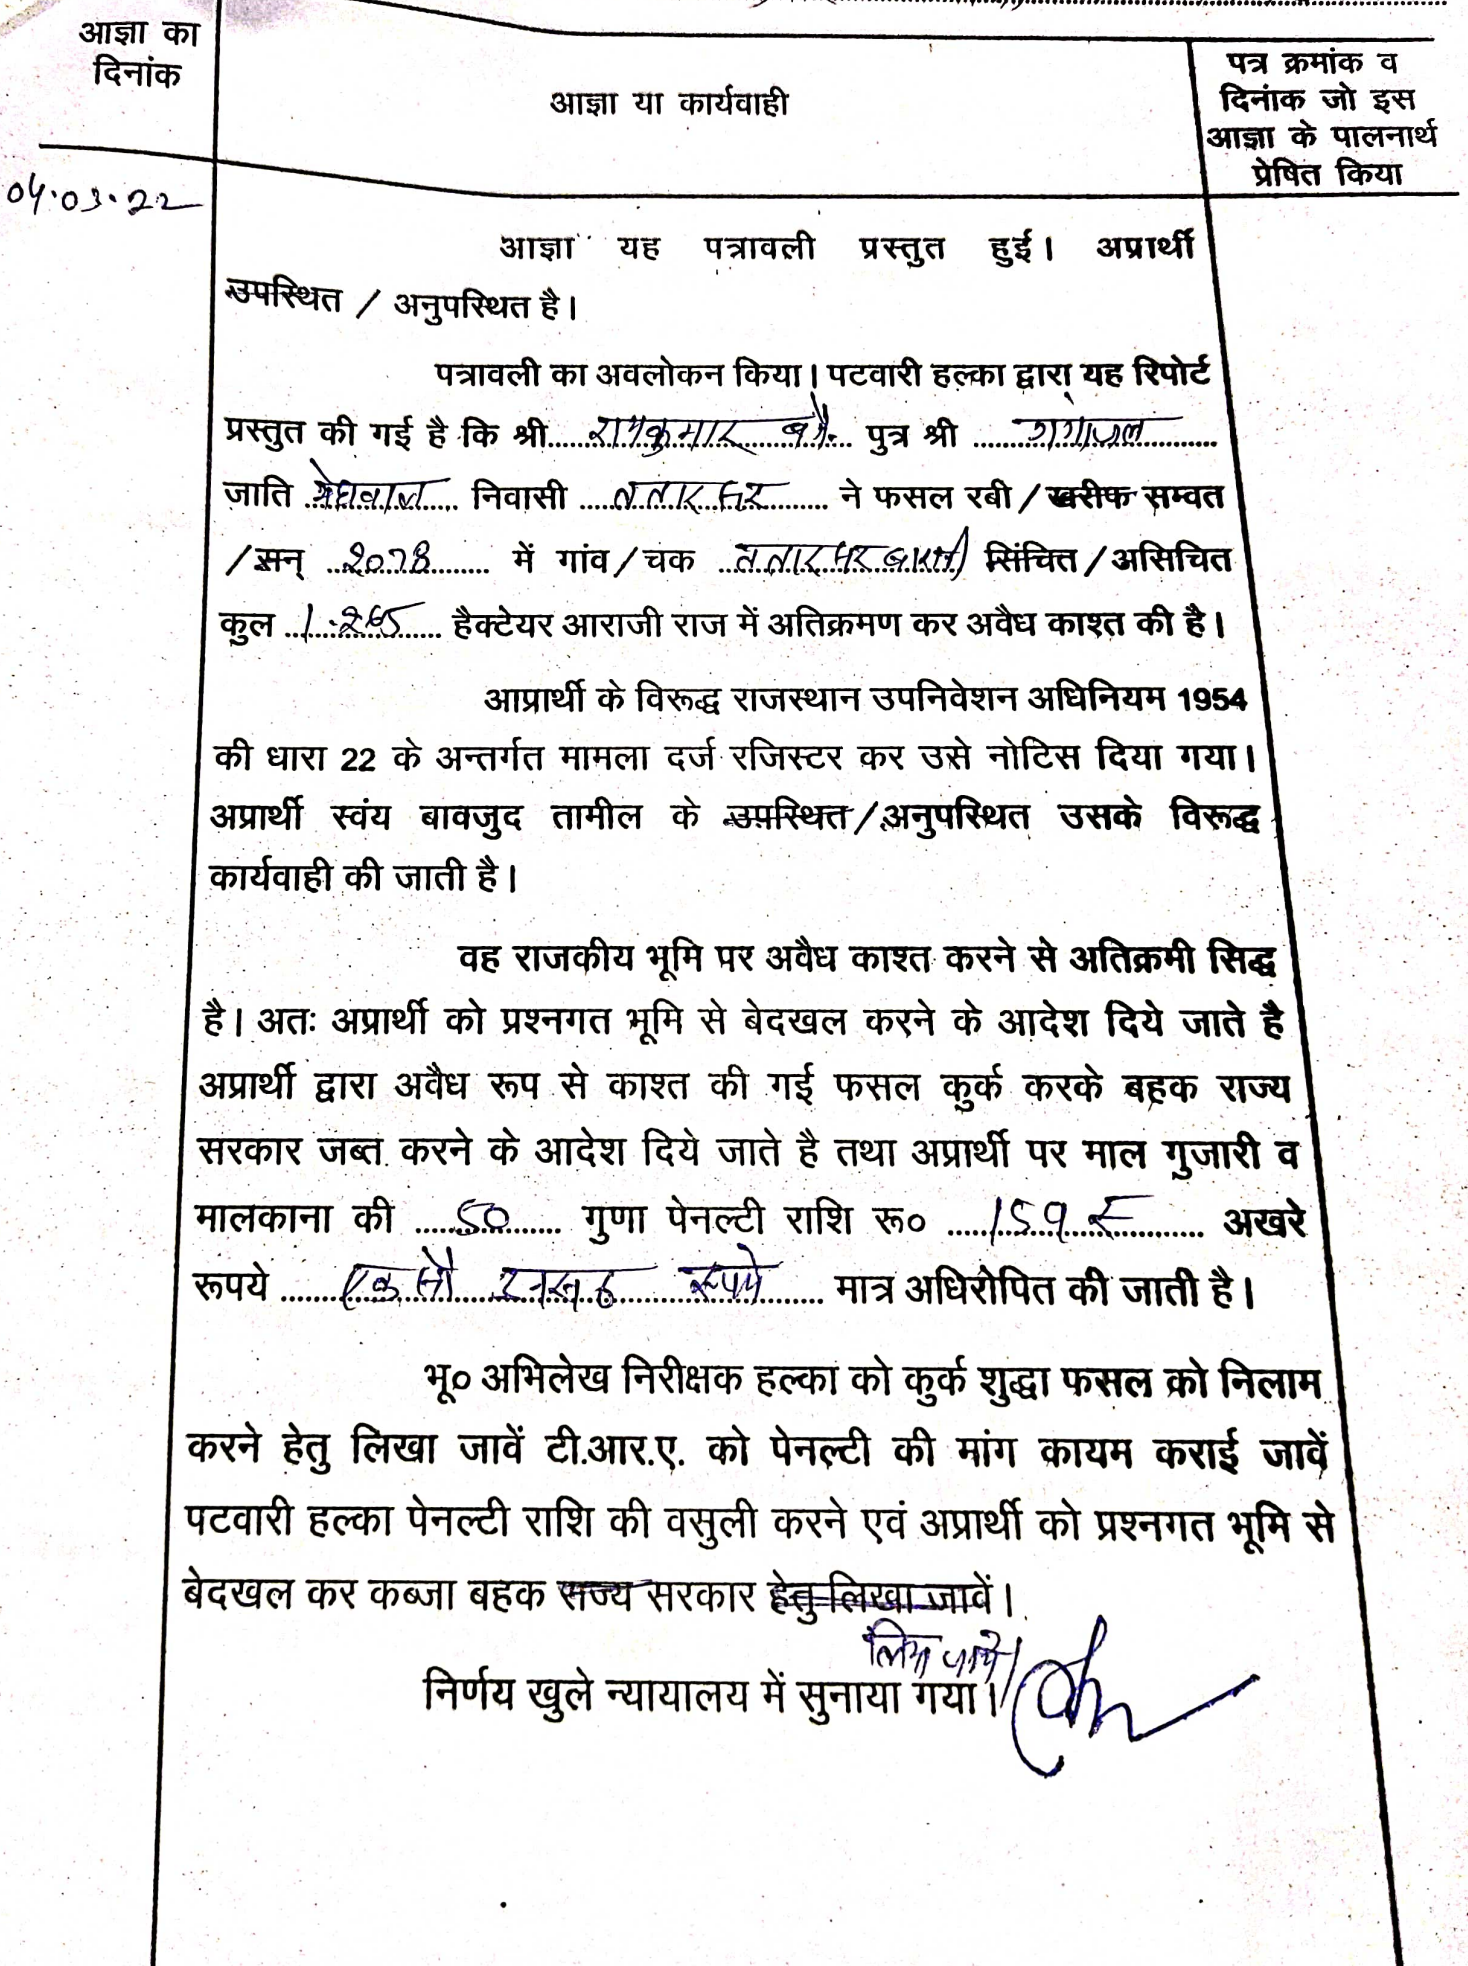 आज्ञा का
दिनांक
आज्ञा या कार्यवाही
पत्र क्रमांक व
दिनांक जो इस
आज्ञा के पालनार्थ
प्रेषित किया
04.03.22
आज्ञा यह पत्रावली प्रस्तुत हुई। अप्रार्थी
उपस्थित / अनुपस्थित है।
पत्रावली का अवलोकन किया। पटवारी हल्का द्वारा यह रिपोर्ट
प्रस्तुत की गई है कि श्री रामकुमार पुत्र श्री
जाति मेघवाल निवासी ततारसर ने फसल रबी / खरीफ सम्वत
/ सन् 2078 में गांव / चक ततारसर सिंचित / असिचित
कुल 1.265 हैक्टेयर आराजी राज में अतिक्रमण कर अवैध काश्त की है।
आप्रार्थी के विरूद्ध राजस्थान उपनिवेशन अधिनियम 1954
की धारा 22 के अन्तर्गत मामला दर्ज रजिस्टर कर उसे नोटिस दिया गया।
अप्रार्थी स्वंय बावजुद तामील के उपस्थित / अनुपस्थित उसके विरूद्ध
कार्यवाही की जाती है।
वह राजकीय भूमि पर अवैध काश्त करने से अतिक्रमी सिद्ध
है। अतः अप्रार्थी को प्रश्नगत भूमि से बेदखल करने के आदेश दिये जाते है
अप्रार्थी द्वारा अवैध रूप से काश्त की गई फसल कुर्क करके बहक राज्य
सरकार जब्त करने के आदेश दिये जाते है तथा अप्रार्थी पर माल गुजारी व
मालकाना की 50 गुणा पेनल्टी राशि रू० 159 रू अखरे
रूपये एक सौ उनसठ रूपये मात्र अधिरोपित की जाती है।
भू० अभिलेख निरीक्षक हल्का को कुर्क शुद्धा फसल को निलाम
करने हेतु लिखा जावें टी.आर.ए. को पेनल्टी की मांग कायम कराई जावें
पटवारी हल्का पेनल्टी राशि की वसुली करने एवं अप्रार्थी को प्रश्नगत भूमि से
बेदखल कर कब्जा बहक राज्य सरकार हेतु लिखा जावें।
लिया जावे।
निर्णय खुले न्यायालय में सुनाया गया।